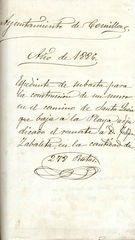 Ayuntamiento de Comillas
Año de 1886.
Expediente de subasta para
la construcción de un muro
en el camino de Santa Lucía
que baja a la Playa adju
dicado el remate a D. Felix
Zaballa, en la cantidad de
273 Pesetas